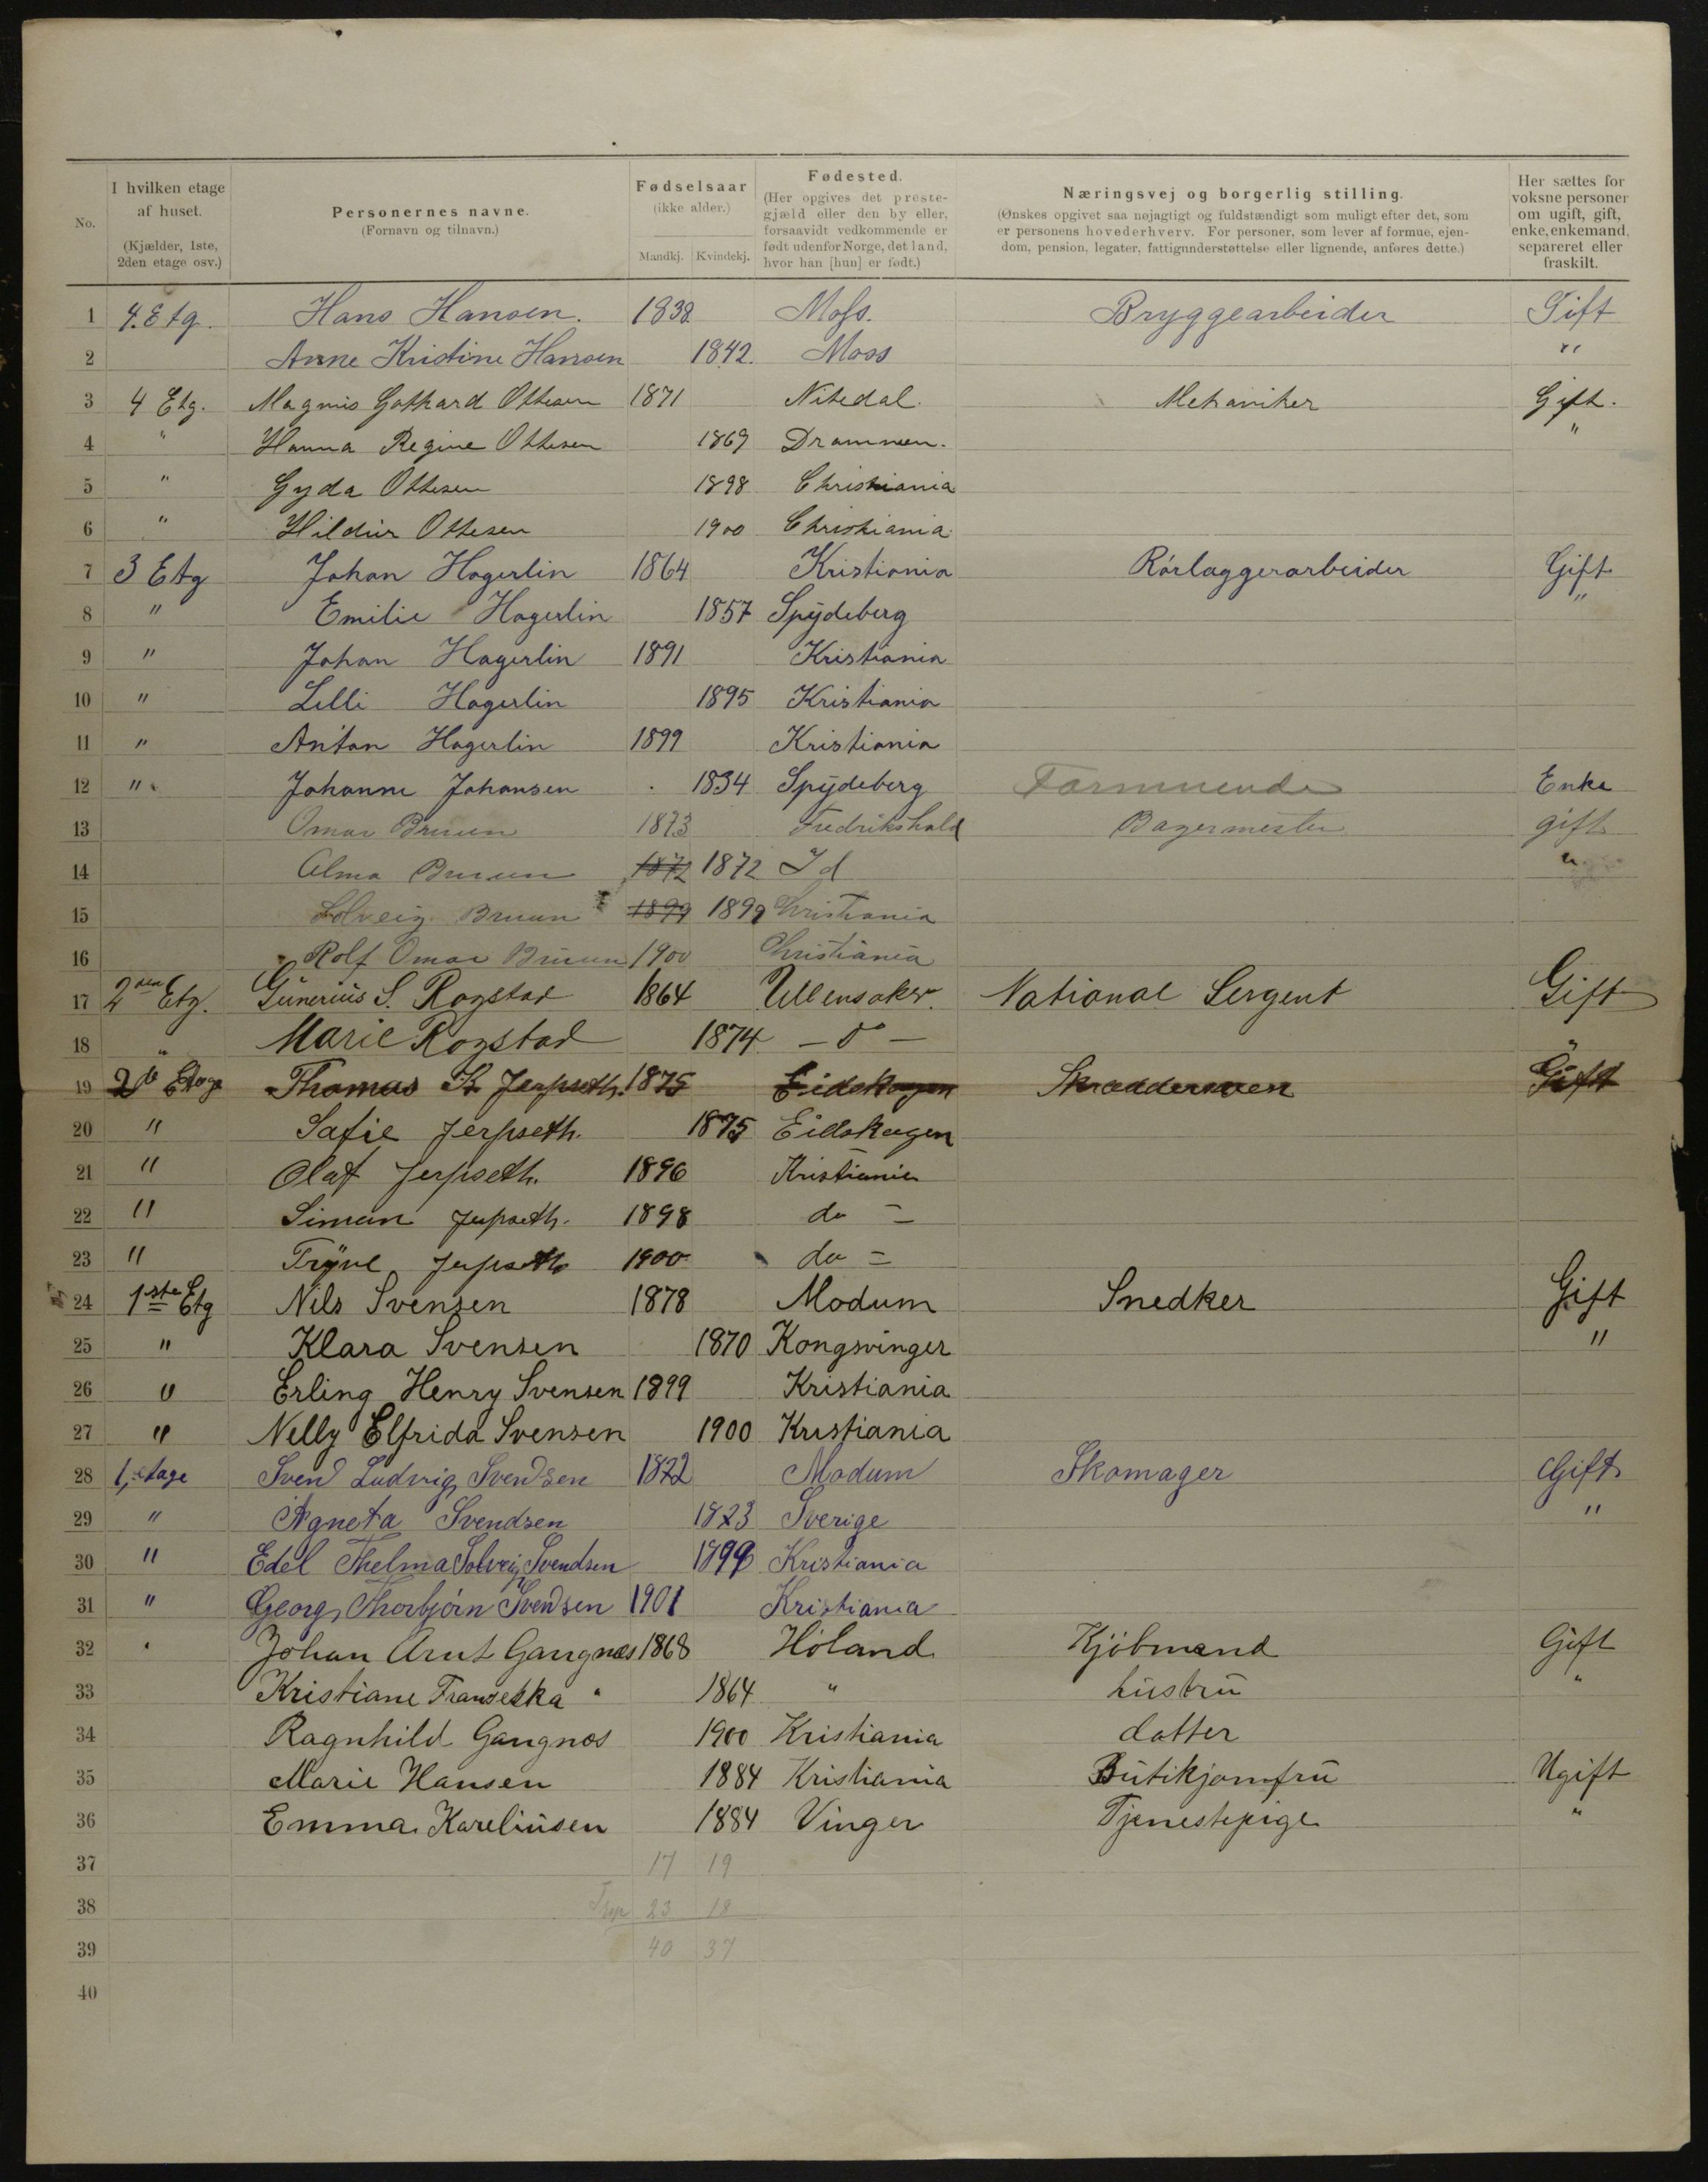 No.
I hvilken etage af huset. (Kjælder, 1ste, 2den etage osv.)
Personernes navne. (Fornavn og tilnavn.)
Fødselsaar (ikke alder.) Mandkj. Kvindekj.
Fødested. (Her opgives det prestegjæld eller den by eller, forsaavidt vedkommende er født udenfor Norge, det land, hvor han [hun] er født.)
Næringsvej og borgerlig stilling. (Ønskes opgivet saa nøjagtigt og fuldstændigt som muligt efter det, som er personens hovederhverv. For personer, som lever af formue, ejendom, pension, legater, fattigunderstøttelse eller lignende, anføres dette.)
Her sættes for voksne personer om ugift, gift, enke, enkemand, separeret eller fraskilt.
1 4. Etg. Hans Hansen. 1838 Moss. Bryggearbeider Gift
2 Anne Kristine Hansen 1842. Moss "
3 4 Etg. Magnus Gothard Ottesen 1871 Nitedal. Mekaniker Gift.
4 " Hanna Regine Ottesen 1869 Drammen. "
5 " Gyda Ottesen 1898 Christiania
6 " Hildur Ottesen 1900 Christiania
7 3 Etg Johan Hagerlin 1864 Kristiania Rørlæggerarbeider Gift
8 " Emilie Hagerlin 1857 Spydeberg "
9 " Johan Hagerlin 1891 Kristiania
10 " Lilli Hagerlin 1895 Kristiania
11 " Anton Hagerlin 1899 Kristiania
12 " Johanne Johansen 1834 Spydeberg Enke
13 Omar Bruun 1873 Fredrikshald Bagermester gift
14 Alma Bruun 1872 1872 Id "
15 Solveig Bruun 1899 1899 Christiania
16 Rolf Omar Bruun 1900 Christiania
17 2den Etg. Gunerius S. Rogstad 1864 Ullensaker. National Sergent Gift
18 " Marie Rogstad 1874 — o — "
19 2de Etage Thomas Jerpseth. 1875 Eidskogen Skræddersven Gift
20 " Safie Jerpseth. 1875 Eidskogen
21 " Olaf Jerpseth. 1896 Kristiania
22 " Siman Jerpseth. 1898 do —
23 " Trÿve Jerpseth 1900 do =
24 1ste Etg Nils Svensen 1878 Modum Snedker Gift
25 " Klara Svensen 1870 Kongsvinger "
26 " Erling Henry Svensen 1899 Kristiania
27 " Nelly Elfrida Svensen 1900 Kristiania
28 1, etage Svend Ludvig Svendsen 1872 Modum Skomager Gift
29 " Agneta Svendsen 1873 Sverige "
30 " Edel Thelma Solveig Svendsen 1899 Kristiania
31 " Georg Thorbjørn Svendsen 1901 Kristiania
32 " Johan Arnt Gangnæs 1868 Høland Kjøbmand Gift
33 Kristiane Franseska " 1864 " hustru "
34 Ragnhild Gangnæs 1900 Kristiania datter
35 Marie Hansen 1884 Kristiania Butikjomfru Ugift
36 Emma Kareliusen 1884 Vinger Tjenestepige "
37 17 19
38 23 18
39 40 37
40